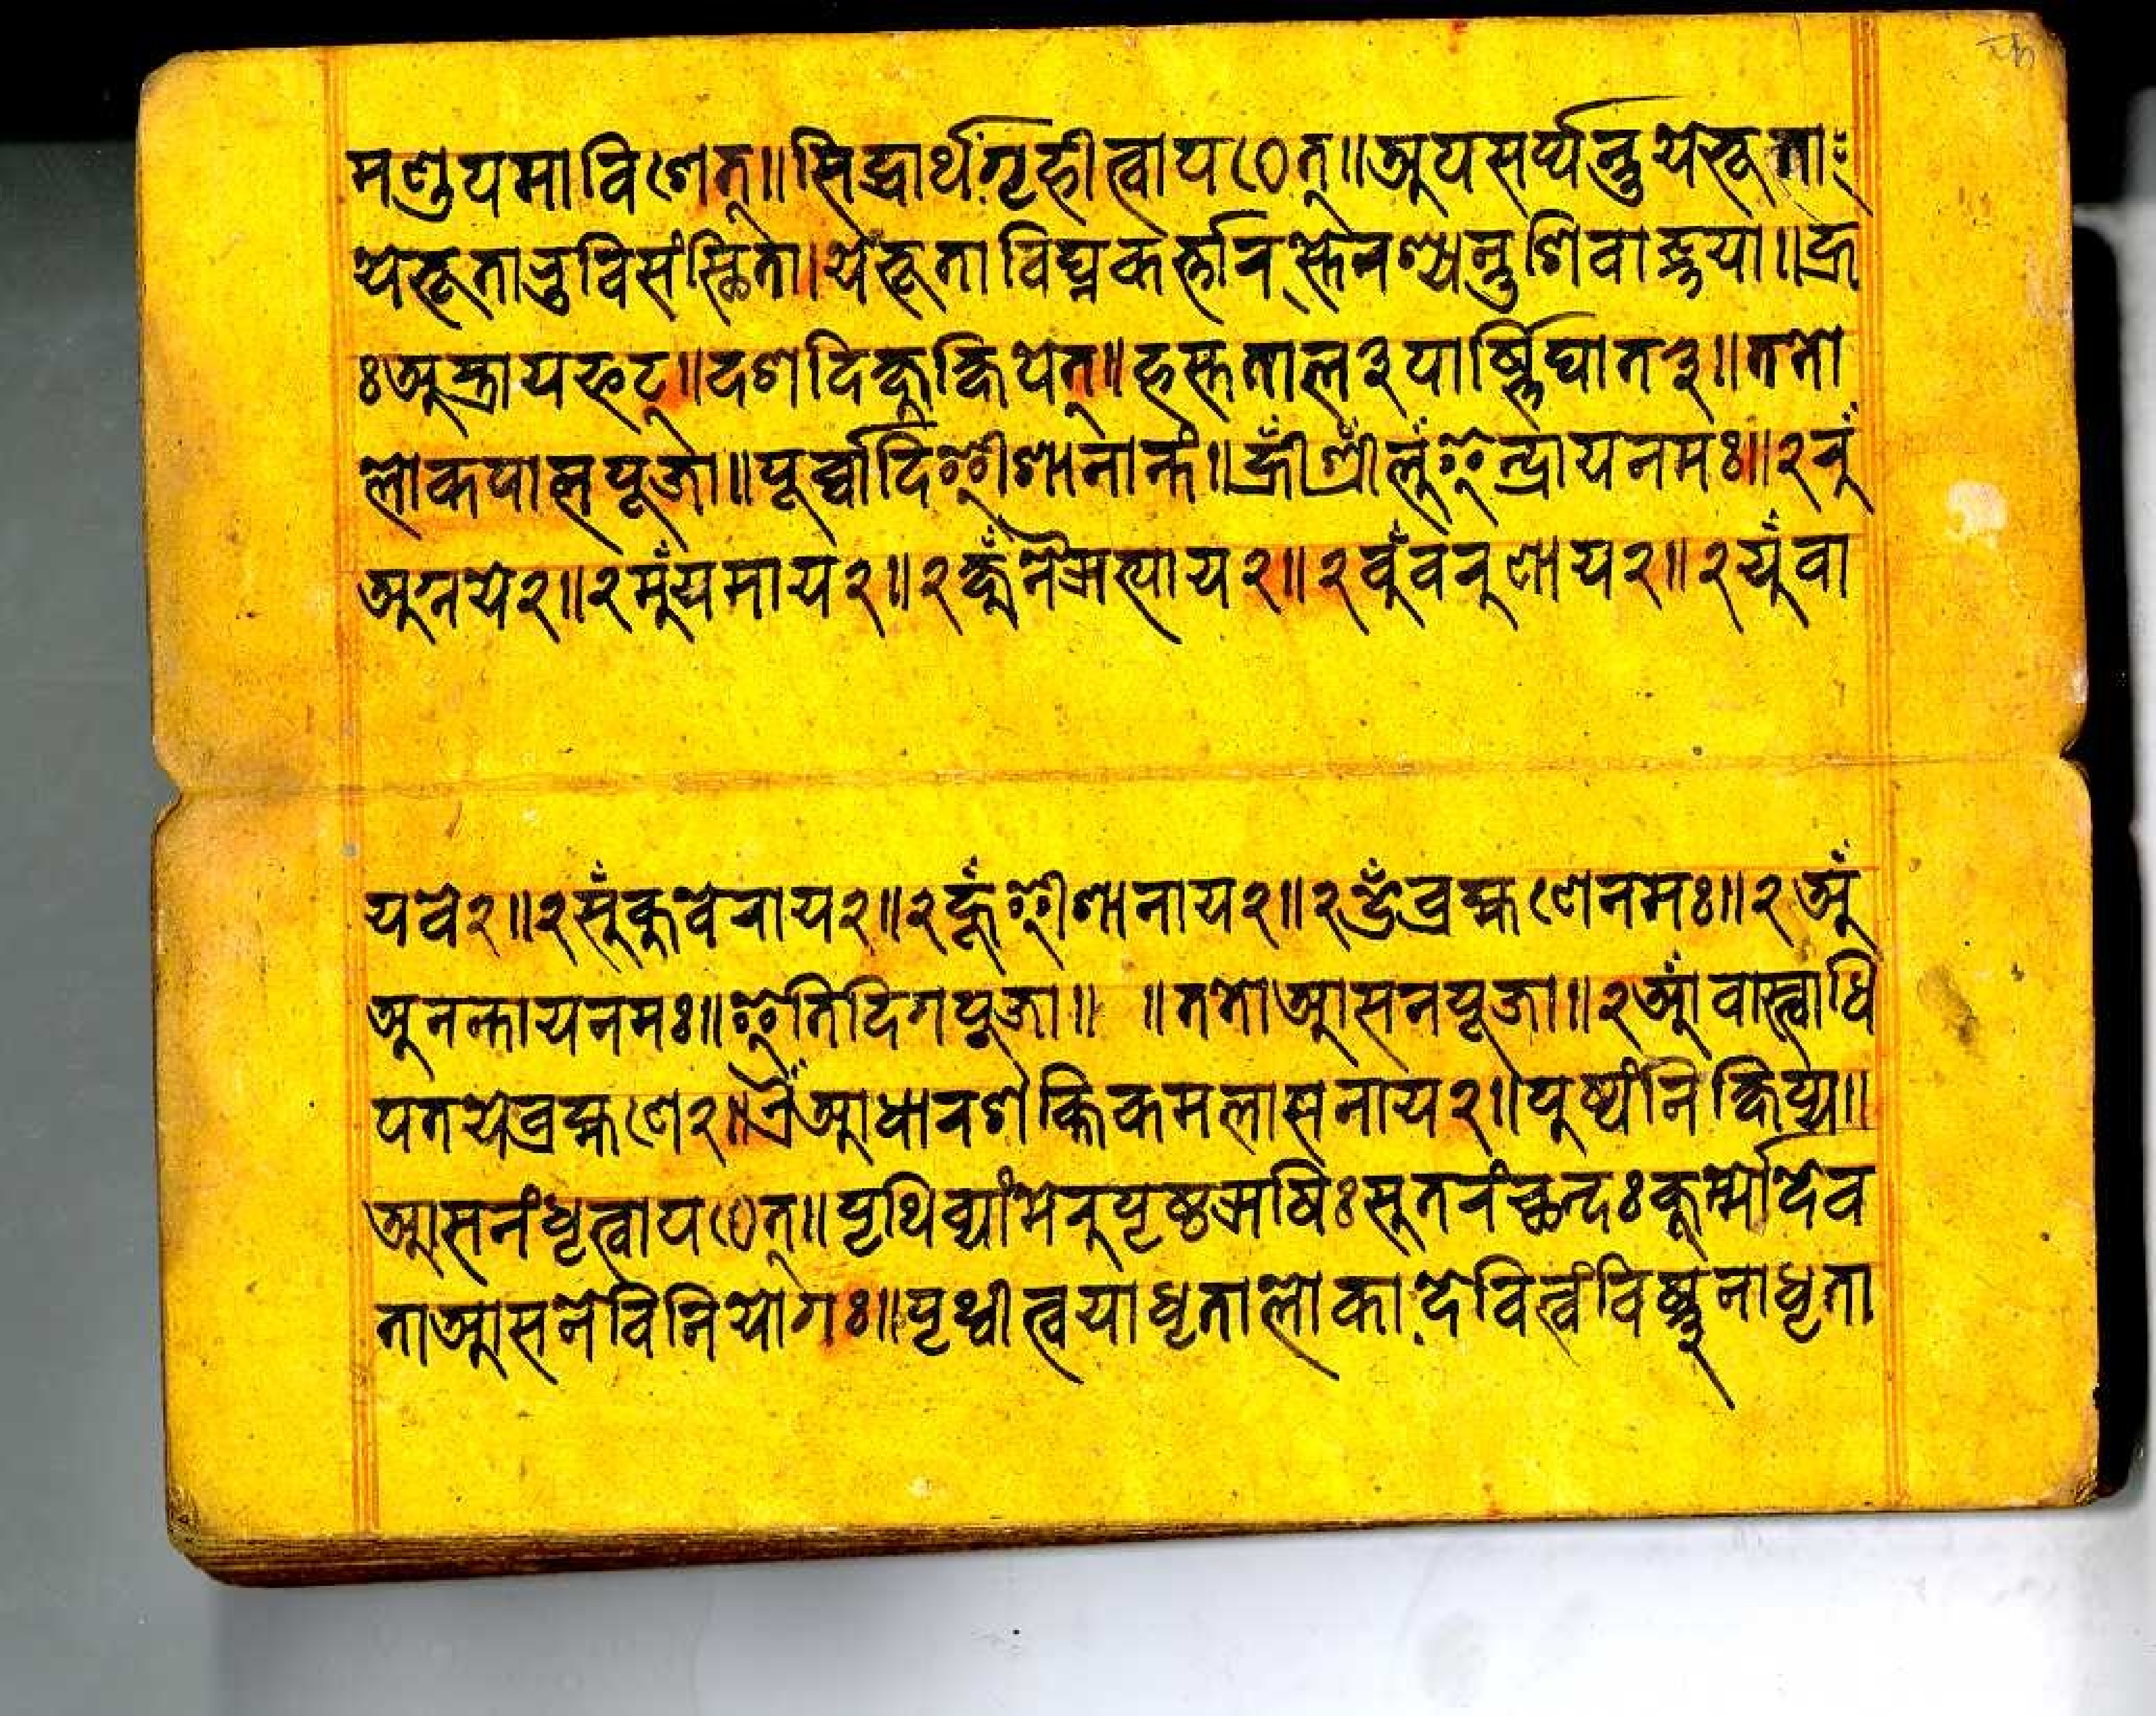 मण्डपमाविशेत्॥सिद्धार्थंगृहीत्वापठेत्॥अपसर्प्पन्तुयेभूताः
येभूताभुविसंस्थिता।येभूताविघ्नकर्त्तारस्तेनश्यन्तुशिवाज्ञया॥ह्र
ःअस्त्रायफट्॥दशदिक्षुक्षिपेत्॥हस्तताल३पार्ष्णिघात३॥ततो
लोकपालपूजा॥पूर्व्वादिईशानान्तं॥ह्रीँश्रीँलुंइन्द्रायनमः॥२रुँ
अग्नये२॥२मुँयमाय२॥२क्षुँनैऋत्याय२॥२वुँवरुणाय२॥२युँवा
यवे२॥२सुँकुवेराय२॥२हूँईशानाय२॥२ब्रह्मणेनमः॥२अँ
अनन्तायनमः॥इतिदिगपूजा॥ ॥ततोआसनपूजा॥२आँवास्त्वाधि
पतयेब्रह्मणे२॥ऐँआधारशक्तिकमलासनाय२॥पुष्पंनिक्षिप्य॥
आसनंधृत्वापठेत्॥पृथिव्यांमेरुपृष्ठऋषिःसुतरंच्छन्दःकूर्म्मोदेव
ताआसनेविनियोगः॥पृथ्वीत्वयाधृतालोकादेवित्वंविष्णुनाधृता